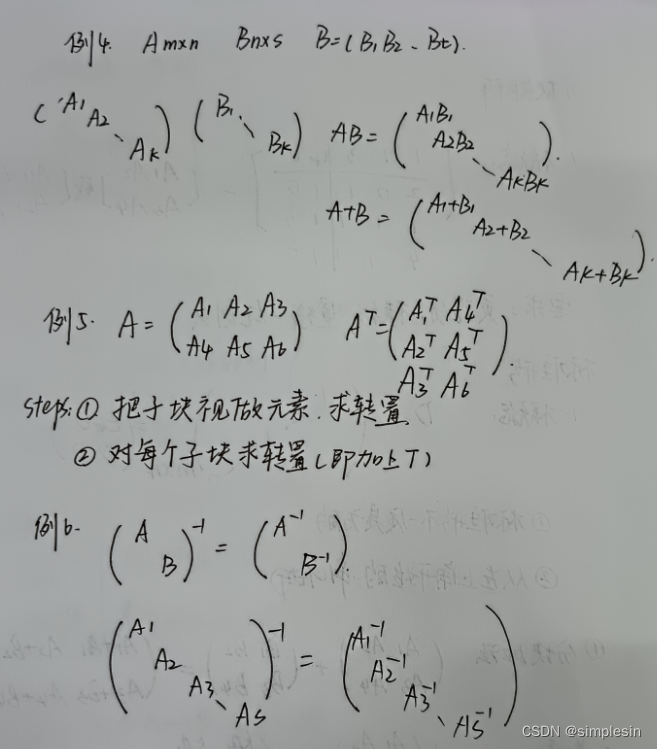 例4. Am×n Bn×s B=(B1 B2 - Bt).
(A1 A2 ⋱ Ak) (B1 ⋱ Bk) AB = (A1B1 A2B2 ⋱ AkBk).
A+B = (A1+B1 A2+B2 ⋱ Ak+Bk).
例5. A = (A1 A2 A3 A^T = (A1^T A4^T
A4 A5 A6) A2^T A5^T
A3^T A6^T)
steps: ① 把子块视做元素. 求转置
② 对每个子块求转置 (即加上T)
例6. (A B)^-1 = (A^-1 B^-1).
(A1 A2 A3 ⋱ As)^-1 = (A1^-1 A2^-1 A3^-1 ⋱ As^-1)
CSDN @simplesin